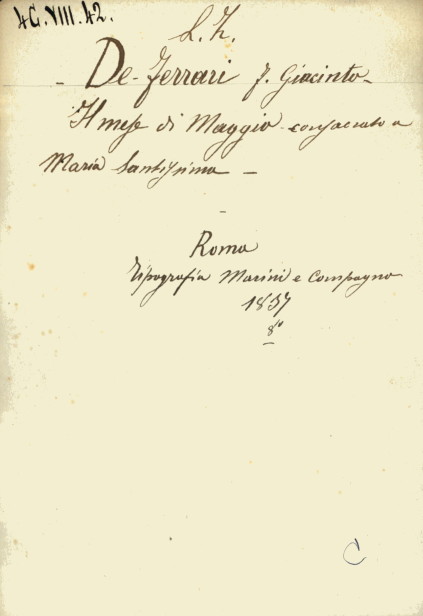 4C.VIII.42.
L. Z.
- De-Ferrari F. Giacinto -
Il mese di Maggio consacrato a
Maria Santissima -
-
Roma
Tipografia Marini e Compagno
1837
8°
C